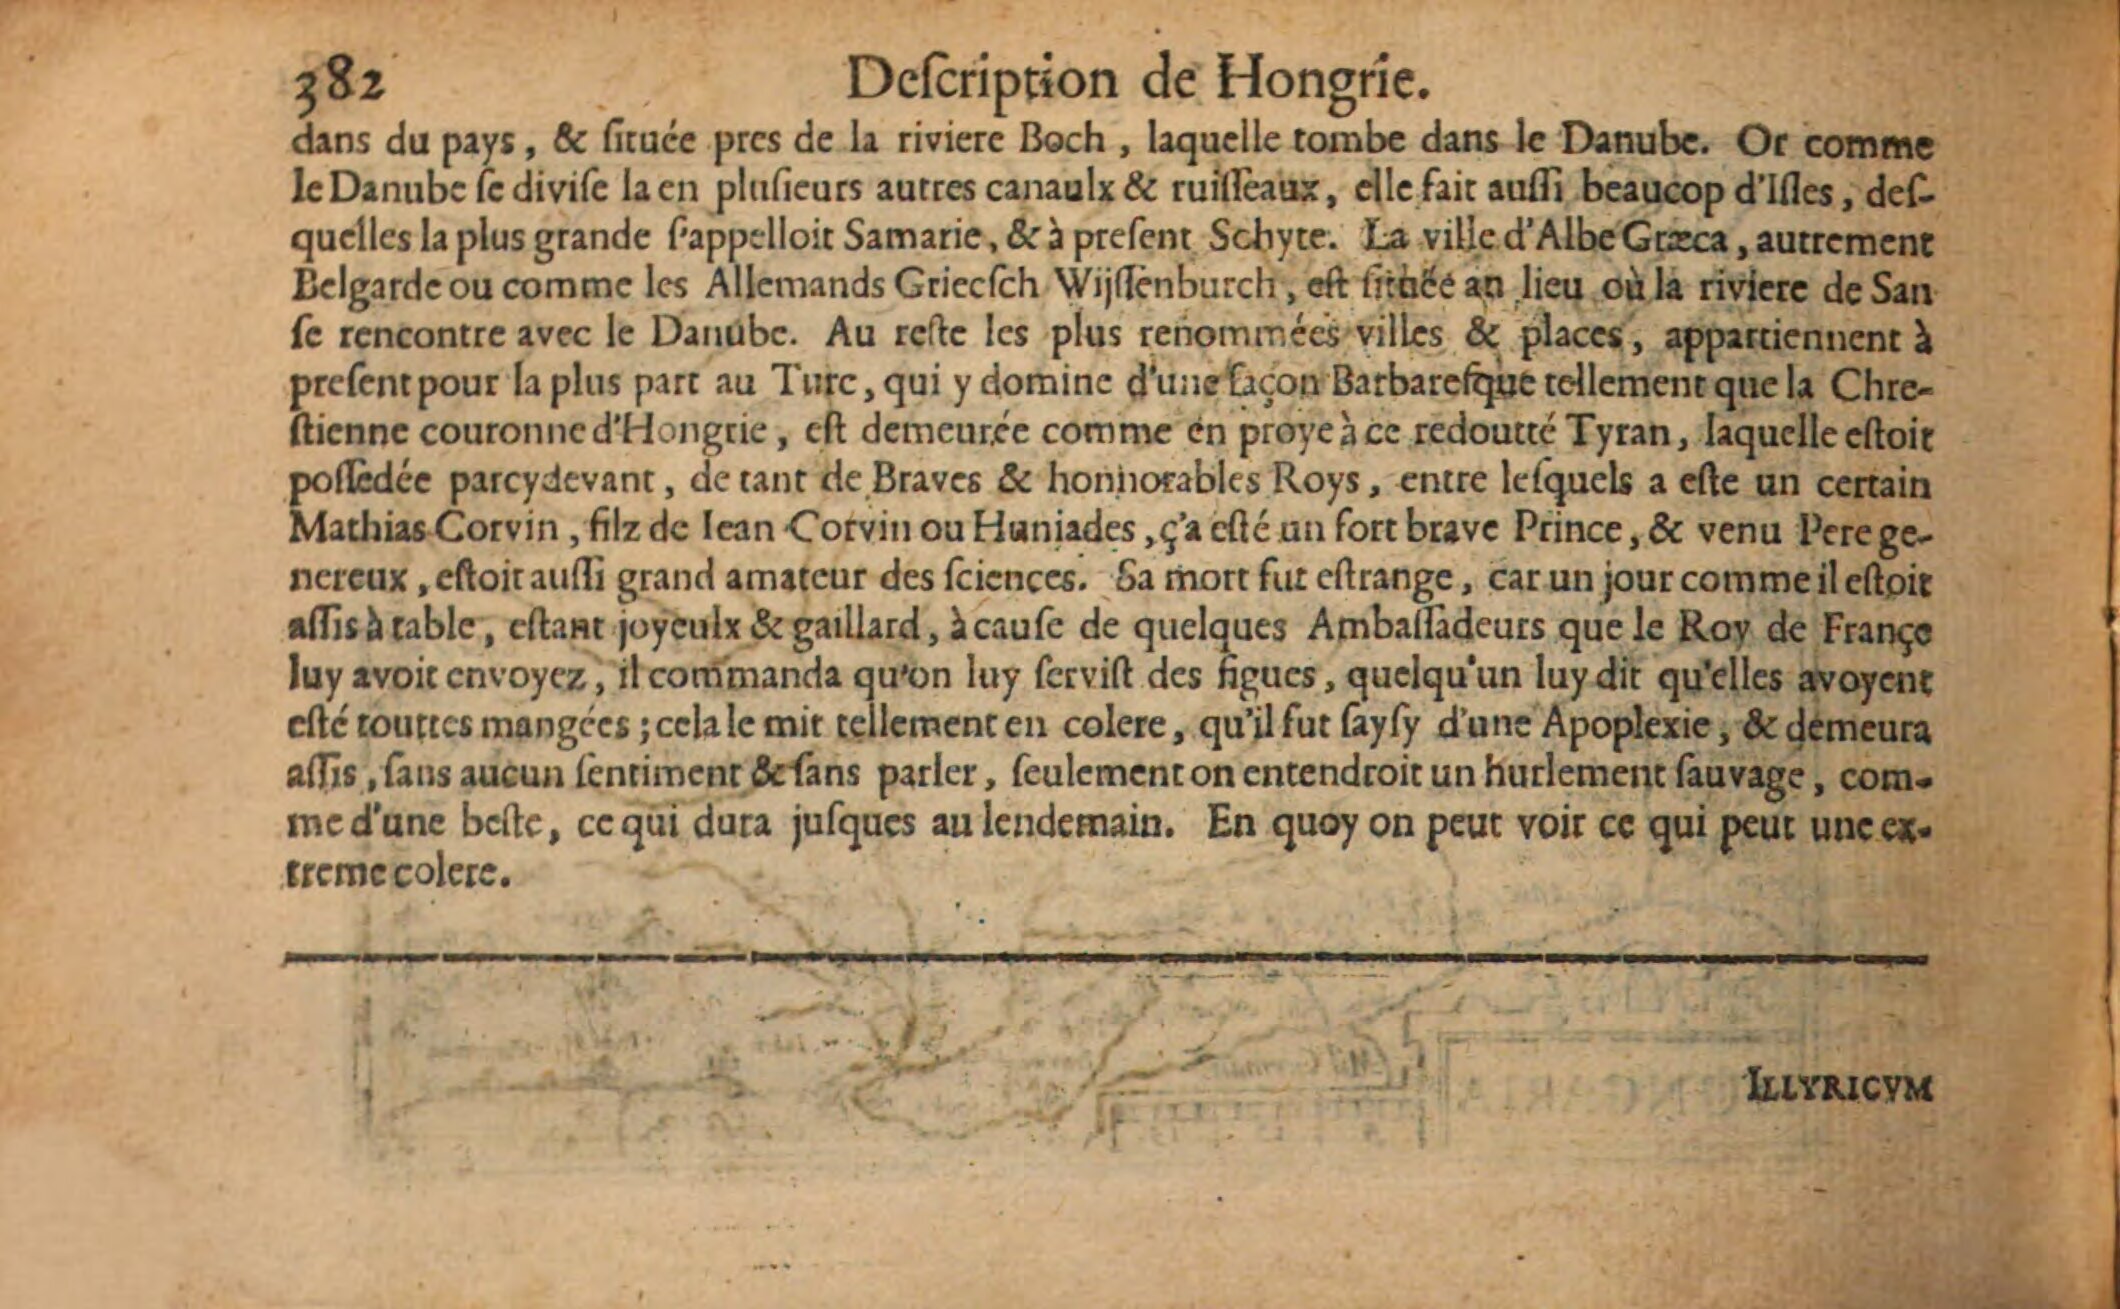 382 Deſcription de Hongrie.
dans du pays, & ſituée pres de la riviere Boch, laquelle tombe dans le Danube. Or comme
le Danube ſe diviſe la en pluſieurs autres canaulx & ruiſſeaux, elle fait auſſi beaucop d'Iſles, deſ-
quelles la plus grande ſ'appelloit Samarie, & à preſent Schyte. La ville d'Albe Græca, autrement
Belgarde ou comme les Allemands Griecſch Wijſſenburch, eſt ſituée au lieu où la riviere de San
ſe rencontre avec le Danube. Au reſte les plus renommées villes & places, appartiennent à
preſent pour la plus part au Turc, qui y domine d'une façon Barbareſque tellement que la Chre-
ſtienne couronne d'Hongrie, eſt demeurée comme en proye à ce redoutté Tyran, laquelle eſtoit
poſſedée parcydevant, de tant de Braves & honnorables Roys, entre leſquels a eſte un certain
Mathias Corvin, filz de Iean Corvin ou Huniades, ç'a eſté un fort brave Prince, & venu Pere ge-
nereux, eſtoit auſſi grand amateur des ſciences. Sa mort fut eſtrange, car un jour comme il eſtoit
aſſis à table, eſtant joyeulx & gaillard, à cauſe de quelques Ambaſſadeurs que le Roy de Françe
luy avoit envoyez, il commanda qu'on luy ſerviſt des figues, quelqu'un luy dit qu'elles avoyent
eſté touttes mangées; cela le mit tellement en colere, qu'il fut ſayſy d'une Apoplexie, & demeura
aſſis, ſans aucun ſentiment & ſans parler, ſeulement on entendroit un hurlement ſauvage, com-
me d'une beſte, ce qui dura juſques au lendemain. En quoy on peut voir ce qui peut une ex-
treme colere.
ILLYRICVM